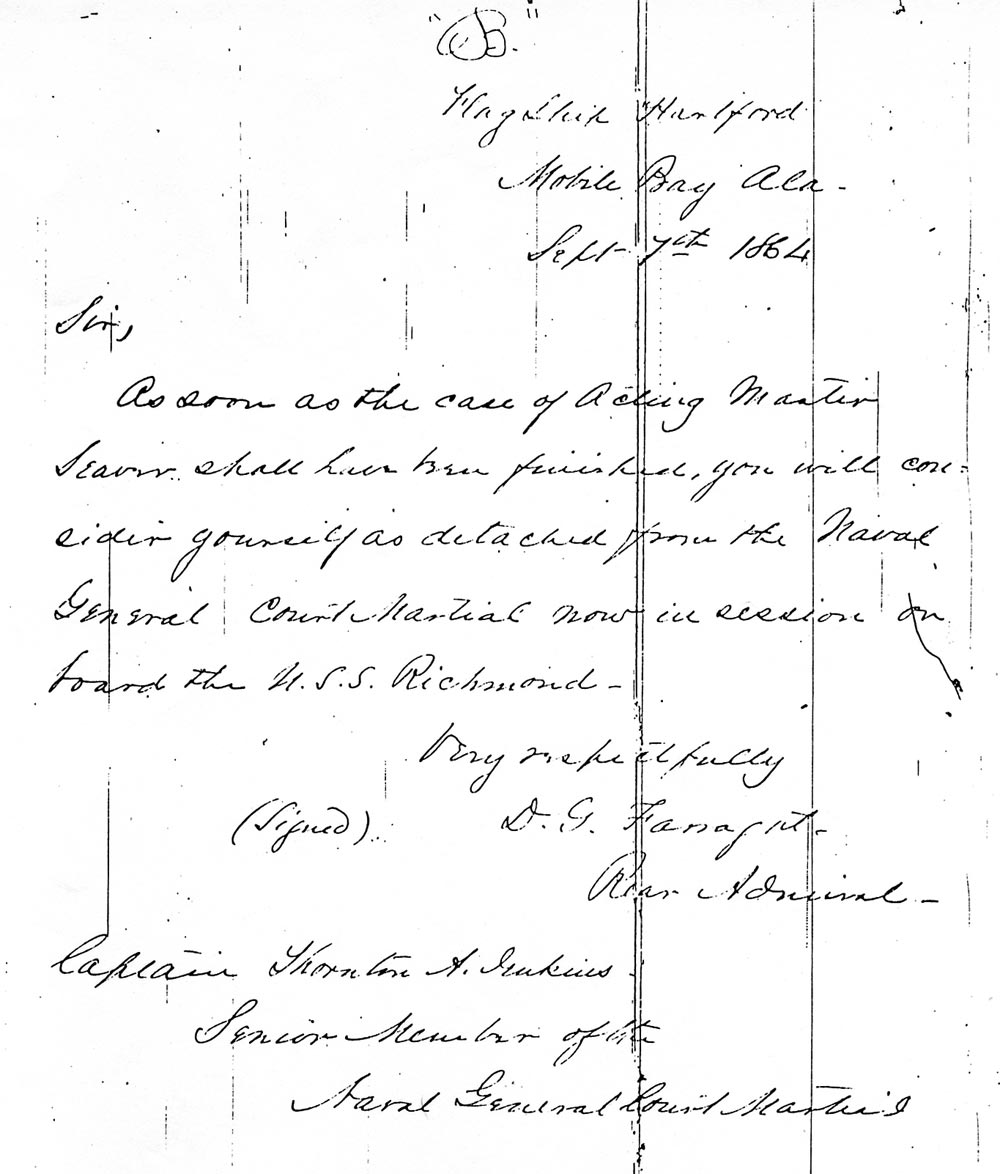 "B."
Flag Ship "Hartford
Mobile Bay Ala -
Sept 7th 1864
Sir,
As soon as the case of Acting Master
Seaver shall have been finished, you will con-
sider yourself as detached from the Naval
General Court Martial now in session on
board the U.S.S. Richmond -
Very respectfully
(Signed) D. G. Farragut -
Rear Admiral -
Captain Thornton A. Jenkins -
Senior Member of the
Naval General Court Martial